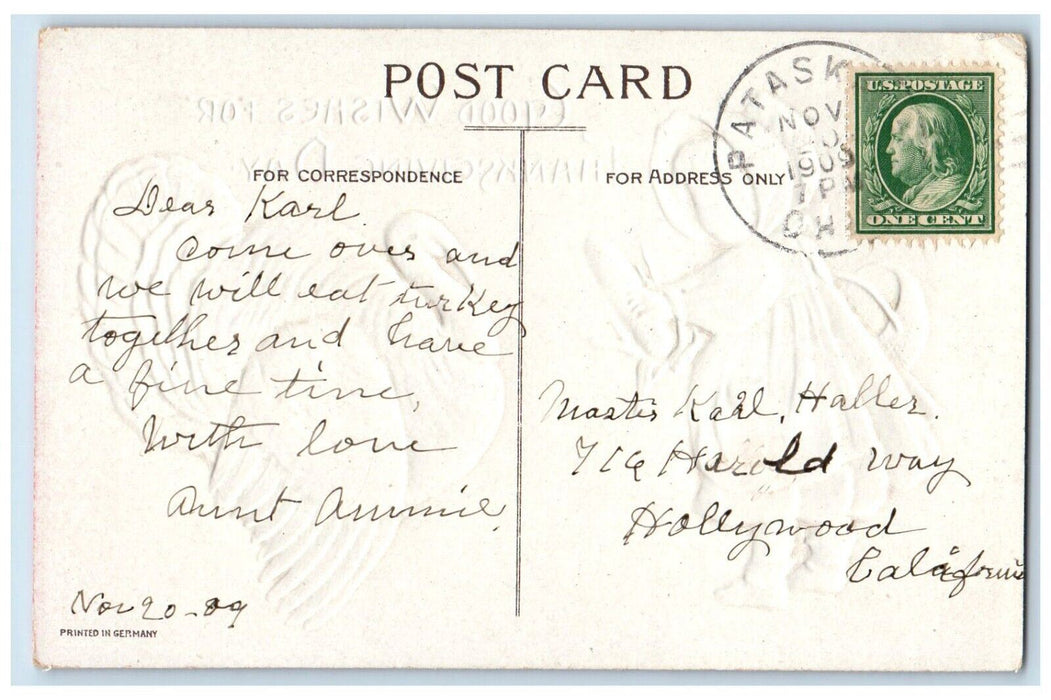 POST CARD
GOOD WISHES FOR
THANKSGIVING DAY
FOR CORRESPONDENCE
FOR ADDRESS ONLY
PATASK
NOV
20
1909
7 PM
OH
U.S. POSTAGE
ONE CENT
Dear Karl
come over and
we will eat turkey
together and have
a fine time,
With love
Aunt Ammie,
Nov 20 - 09
PRINTED IN GERMANY
Master Karl, Haller.
716 Harold way
Hollywood
California